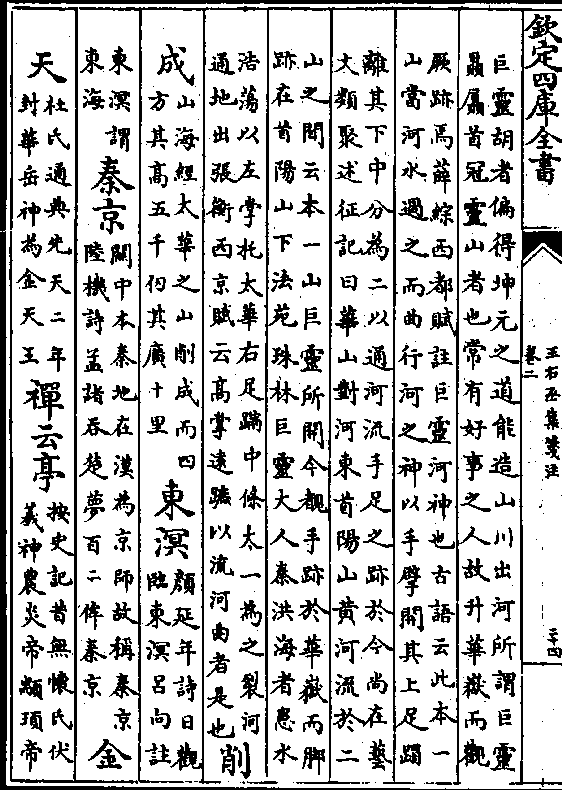 欽定四庫全書
王右丞集箋注
卷二
巨靈胡者偏得坤元之道能造山川出河所謂巨靈
贔屭首冠靈山者也常有好事之人故升華嶽而觀
厥跡焉薛綜西都賦註巨靈河神也古語云此本一
山當河水過之而曲行河之神以手擘開其上足蹋
離其下中分為二以通河流手足之跡於今尚在藝
文類聚述征記曰華山對河東首陽山黃河流於二
山之間云本一山巨靈所開今覩手跡於華嶽而脚
跡在首陽山下法苑珠林巨靈大人秦洪海者患水
浩蕩以左掌托太華右足蹋中條太一為之裂河
通地出張衡西京賦云高掌遠蹠以流河曲者是也
削
成
山海經太華之山削成而四
方其高五千仞其廣十里
東溟
顏延年詩日觀
臨東溟呂向註
東溟謂
東海
秦京
關中本秦地在漢為京師故稱秦京
陸機詩孟諸吞楚夢百二侔秦京
金
天
杜氏通典先天二年
封華岳神為金天王
禪云亭
按史記昔無懷氏伏
羲神農炎帝顓頊帝